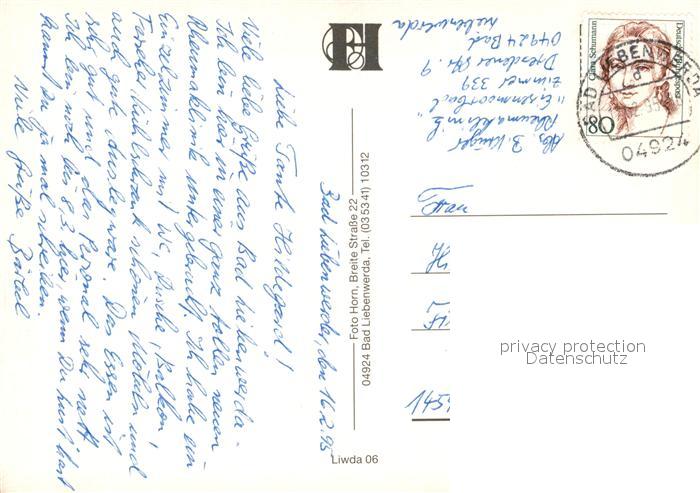 Bad Liebenwerda, den 16.2.95
Liebe Tante Hildegard!
Viele liebe Grüße aus Bad Liebenwerda.
Ich bin hier in einer ganz tollen neuen
Rheumaklinik untergebracht. Ich habe ein
Einzelzimmer mit WC, Dusche, Balkon,
Kühlschrank schönen Möbeln und
auch gute Auslegware. Das Essen ist
sehr gut und das Personal sehr nett
Ich bin noch bis 8.3. hier, wenn Du Lust hast
kannst Du ja mal schreiben.
Viele Grüße Bärbel
FH
Foto Horn, Breite Straße 22
04924 Bad Liebenwerda. Tel. (03 53 41) 10312
Liwda 06
Abs. B. Krüger
Rheumaklinik
"Eisenmoorbad"
Zimmer 339
Dresdener Str. 9
04924 Bad
Liebenwerda
Deutsche Bundespost
Clara Schumann
80
BAD LIEBENWERDA
04924
Frau
145
privacy protection
Datenschutz